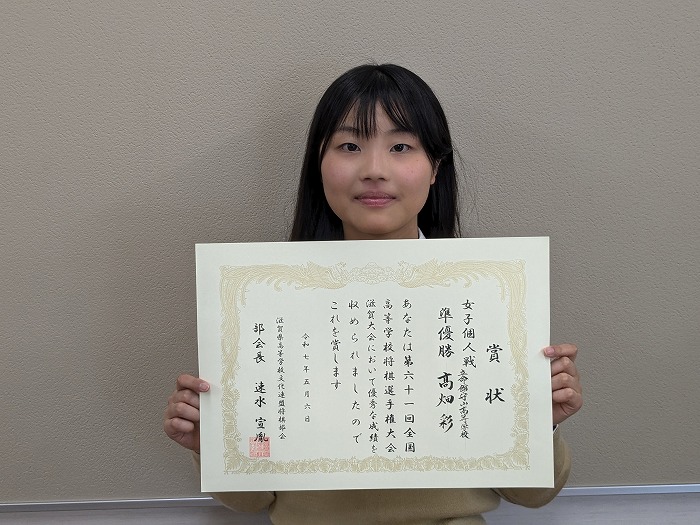 賞状
女子個人戦
立命館守山高等学校
準優勝 髙畑彩
あなたは第六十一回全国
高等学校将棋選手権大会
滋賀大会において優秀な成績を
収められましたので
これを賞します
令和七年五月六日
滋賀県高等学校文化連盟将棋部会
部会長 速水宣胤